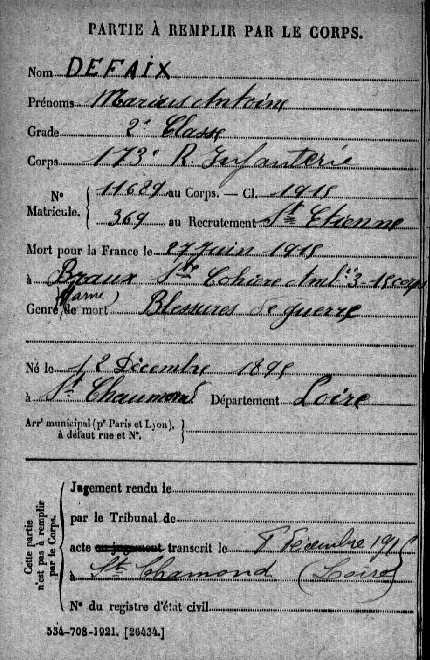 PARTIE À REMPLIR PAR LE CORPS.
Nom DEFAIX
Prénoms Marius Antoine
Grade 2e Classe
Corps 173e R Infanterie
N° Matricule. 11689 au Corps. — Cl. 1915
369 au Recrutement St Etienne
Mort pour la France le 27 Juin 1915
à Braux Ste Cohière Amb. 3 - 15e corps
(Marne)
Genre de mort Blessures de guerre
Né le Décembre 1895
à St Chaumond Département Loire
Arrt municipal (pr Paris et Lyon), à défaut rue et N°.
Cette partie n'est pas à remplir par le Corps.
Jugement rendu le
par le Tribunal de
acte ou jugement transcrit le Décembre 1915
à St Chamond (Loire)
N° du registre d'état civil
534-708-1921. [26434.]